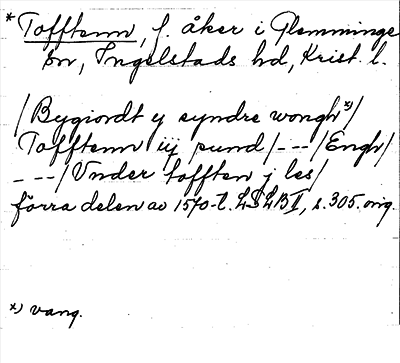 * Tofftenn, f. åker i Glemminge
sn, Ingelstads hd, Krist. l.
/Bygiordt y syndre wongh*)/
Tofftenn iij pund/---/Engh/
---/Vnder tofften j les/
förra delen av 1570-t. LSLB II, s. 305. orig.
*) vang.